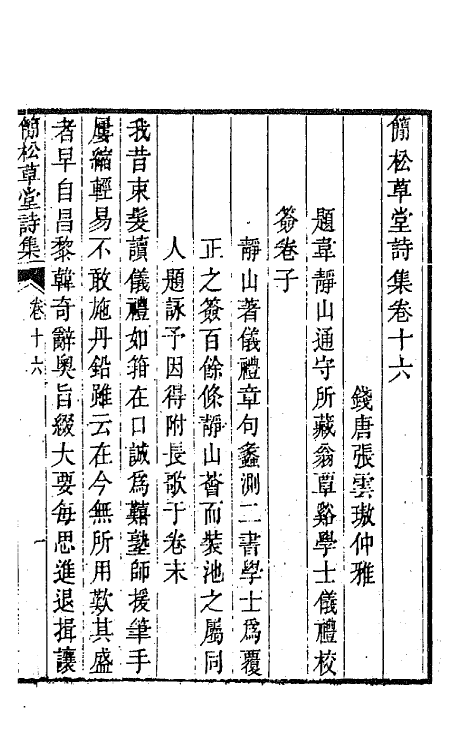 簡松草堂詩集卷十六
錢唐張雲璈仲雅
題韋靜山通守所藏翁覃谿學士儀禮校
簽卷子
靜山著儀禮章句蠡測二書學士爲覆
正之簽百餘條靜山薈而裝池之屬同
人題詠予因得附長歌于卷末
我昔束髮讀儀禮如箝在口誠爲囏塾師援筆手
屢縮輕易不敢施丹鉛雖云在今無所用歎其盛
者早自昌黎韓奇辭奧旨綴大要每思進退揖讓
簡松草堂詩集 卷十六 一